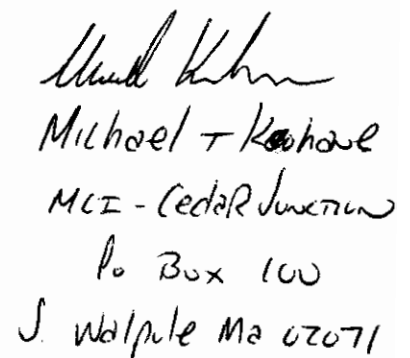 Michael T Keohane
MCI - Cedar Junction
Po Box 100
S. Walpole Ma 02071